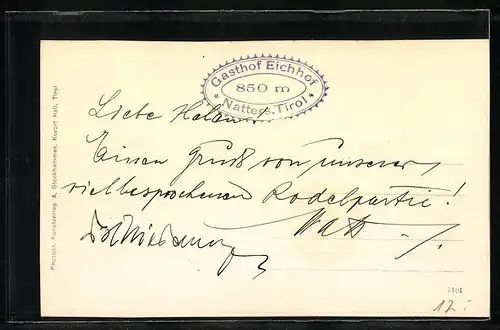 Gasthof Eichhof
850 m
* Natters, Tirol *
Liebe
Einen Gruß von unserer
vielbesprochenen Rodelpartie!
Photogr. Kunstverlag A. Stockhammer, Kurort Hall, Tirol
1101
17.